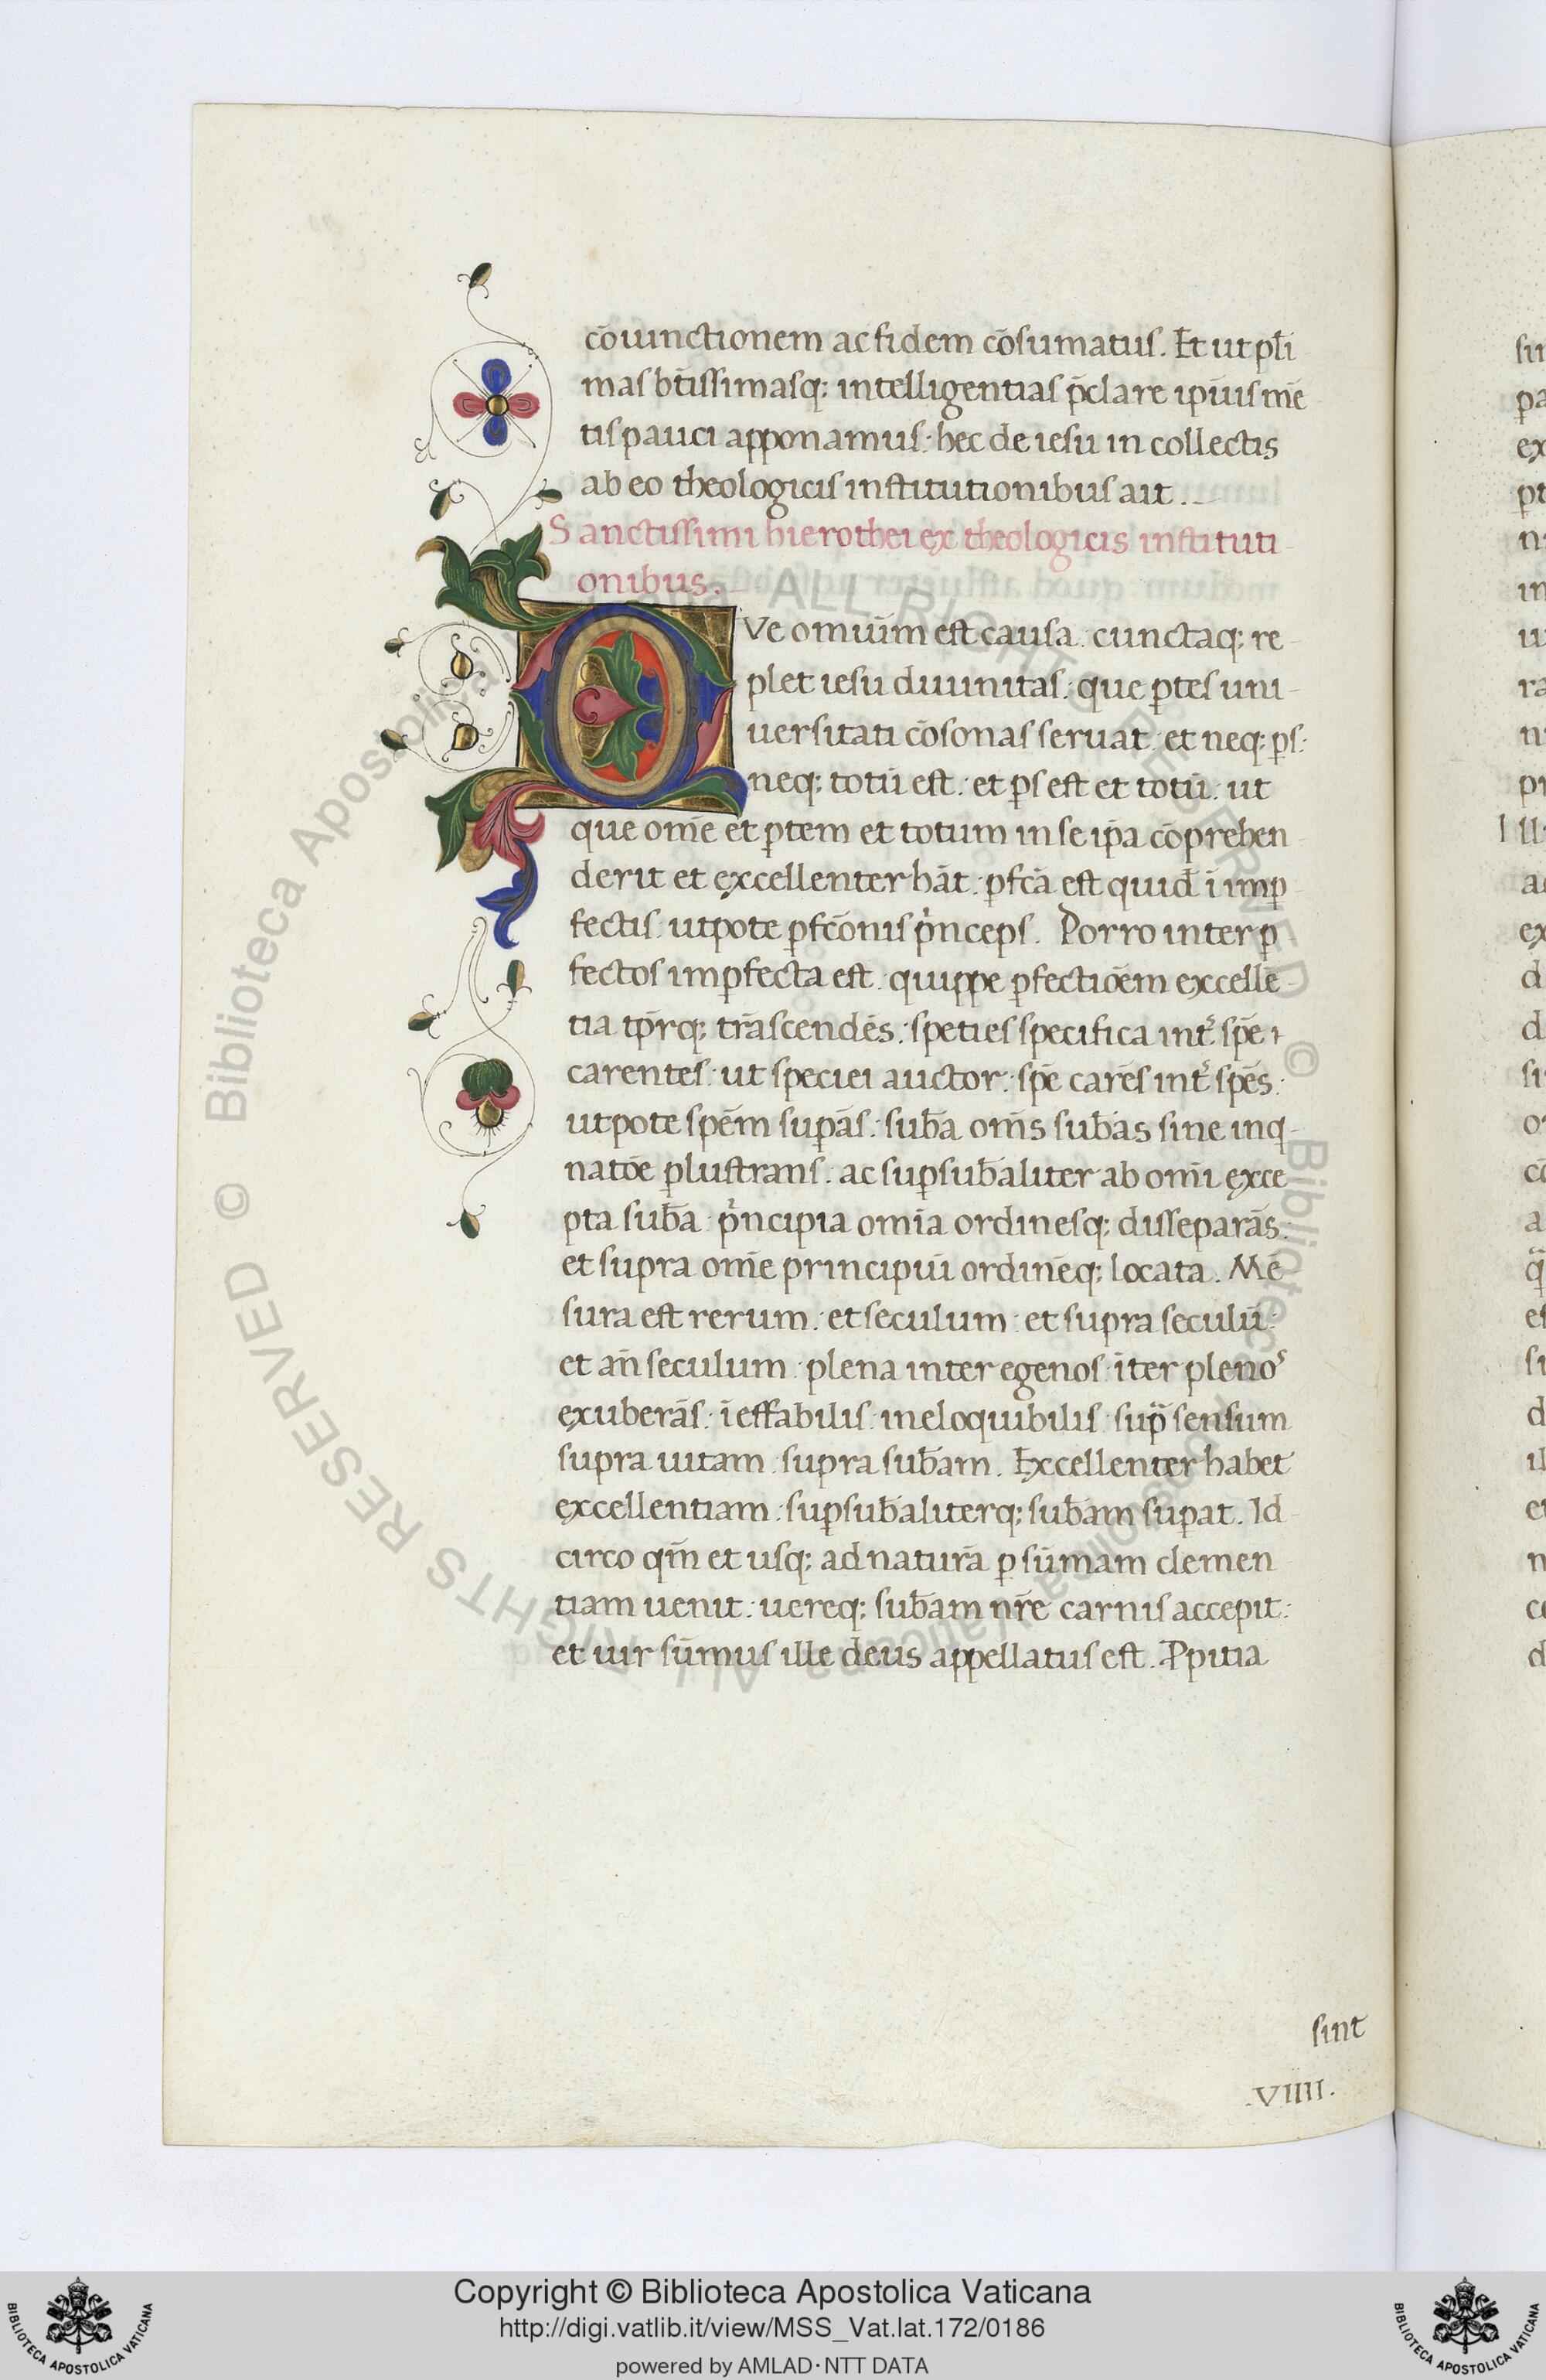 cōiunctionem ac fidem cōsumatus. Et ut pl̄i
mas bt̄issimasq; intelligentias p̄clare ipīus mē
tis pauci apponamus: hec de iesu in collectis
ab eo theologicis institutionibus ait.
Sanctissimi hierothei ex theologicis instituti
onibus.
QVe omnīm est causa: cunctaq; re
plet iesu diuinitas: que ꝑtes uni
uersitati cōsonas seruat: et neq; ꝑs:
neq; totū est: et ꝑs est et totū: ut
que om̄e et ꝑtem et totum in se ip̄a cōprehen
derit et excellenter hāt: ꝑfcā est quid̄ ī imꝑ
fectis: utpote ꝑfcōnis p̓nceps. Porro inter ꝑ
fectos imꝑfecta est: quippe ꝑfectiōem excellē
tia tp̄rq; trāscendēs: speties specifica int̓ spē
carentes: ut speciei auctor: spē carēs int̓ spēs:
utpote spēm suꝑās: sub̄a om̄s sub̄as sine inq
natōe ꝑlustrans: ac suꝑsub̄aliter ab om̄i exce
pta sub̄a: p̓ncipia om̄ia ordinesq; disseparās:
et supra om̄e principiū ordinēq; locata. Mē
sura est rerum: et seculum: et supra seculū:
et an̄ seculum: plena inter egenos: īter plenos
exuberās: īeffabilis: ineloquibilis: sup̄ sensum
supra uitam: supra sub̄am. Excellenter habet
excellentiam: suꝑsub̄aliterq; sub̄am suꝑat. Id
circo qm̄ et usq; ad naturā ꝑ sūmam clemen
tiam uenit: uereq; sub̄am nr̄e carnis accepit:
et uir sūmus ille deus appellatus est. Ꝓpitia
sint
.VIIII.
Copyright © Biblioteca Apostolica Vaticana
http://digi.vatlib.it/view/MSS_Vat.lat.172/0186
powered by AMLAD·NTT DATA